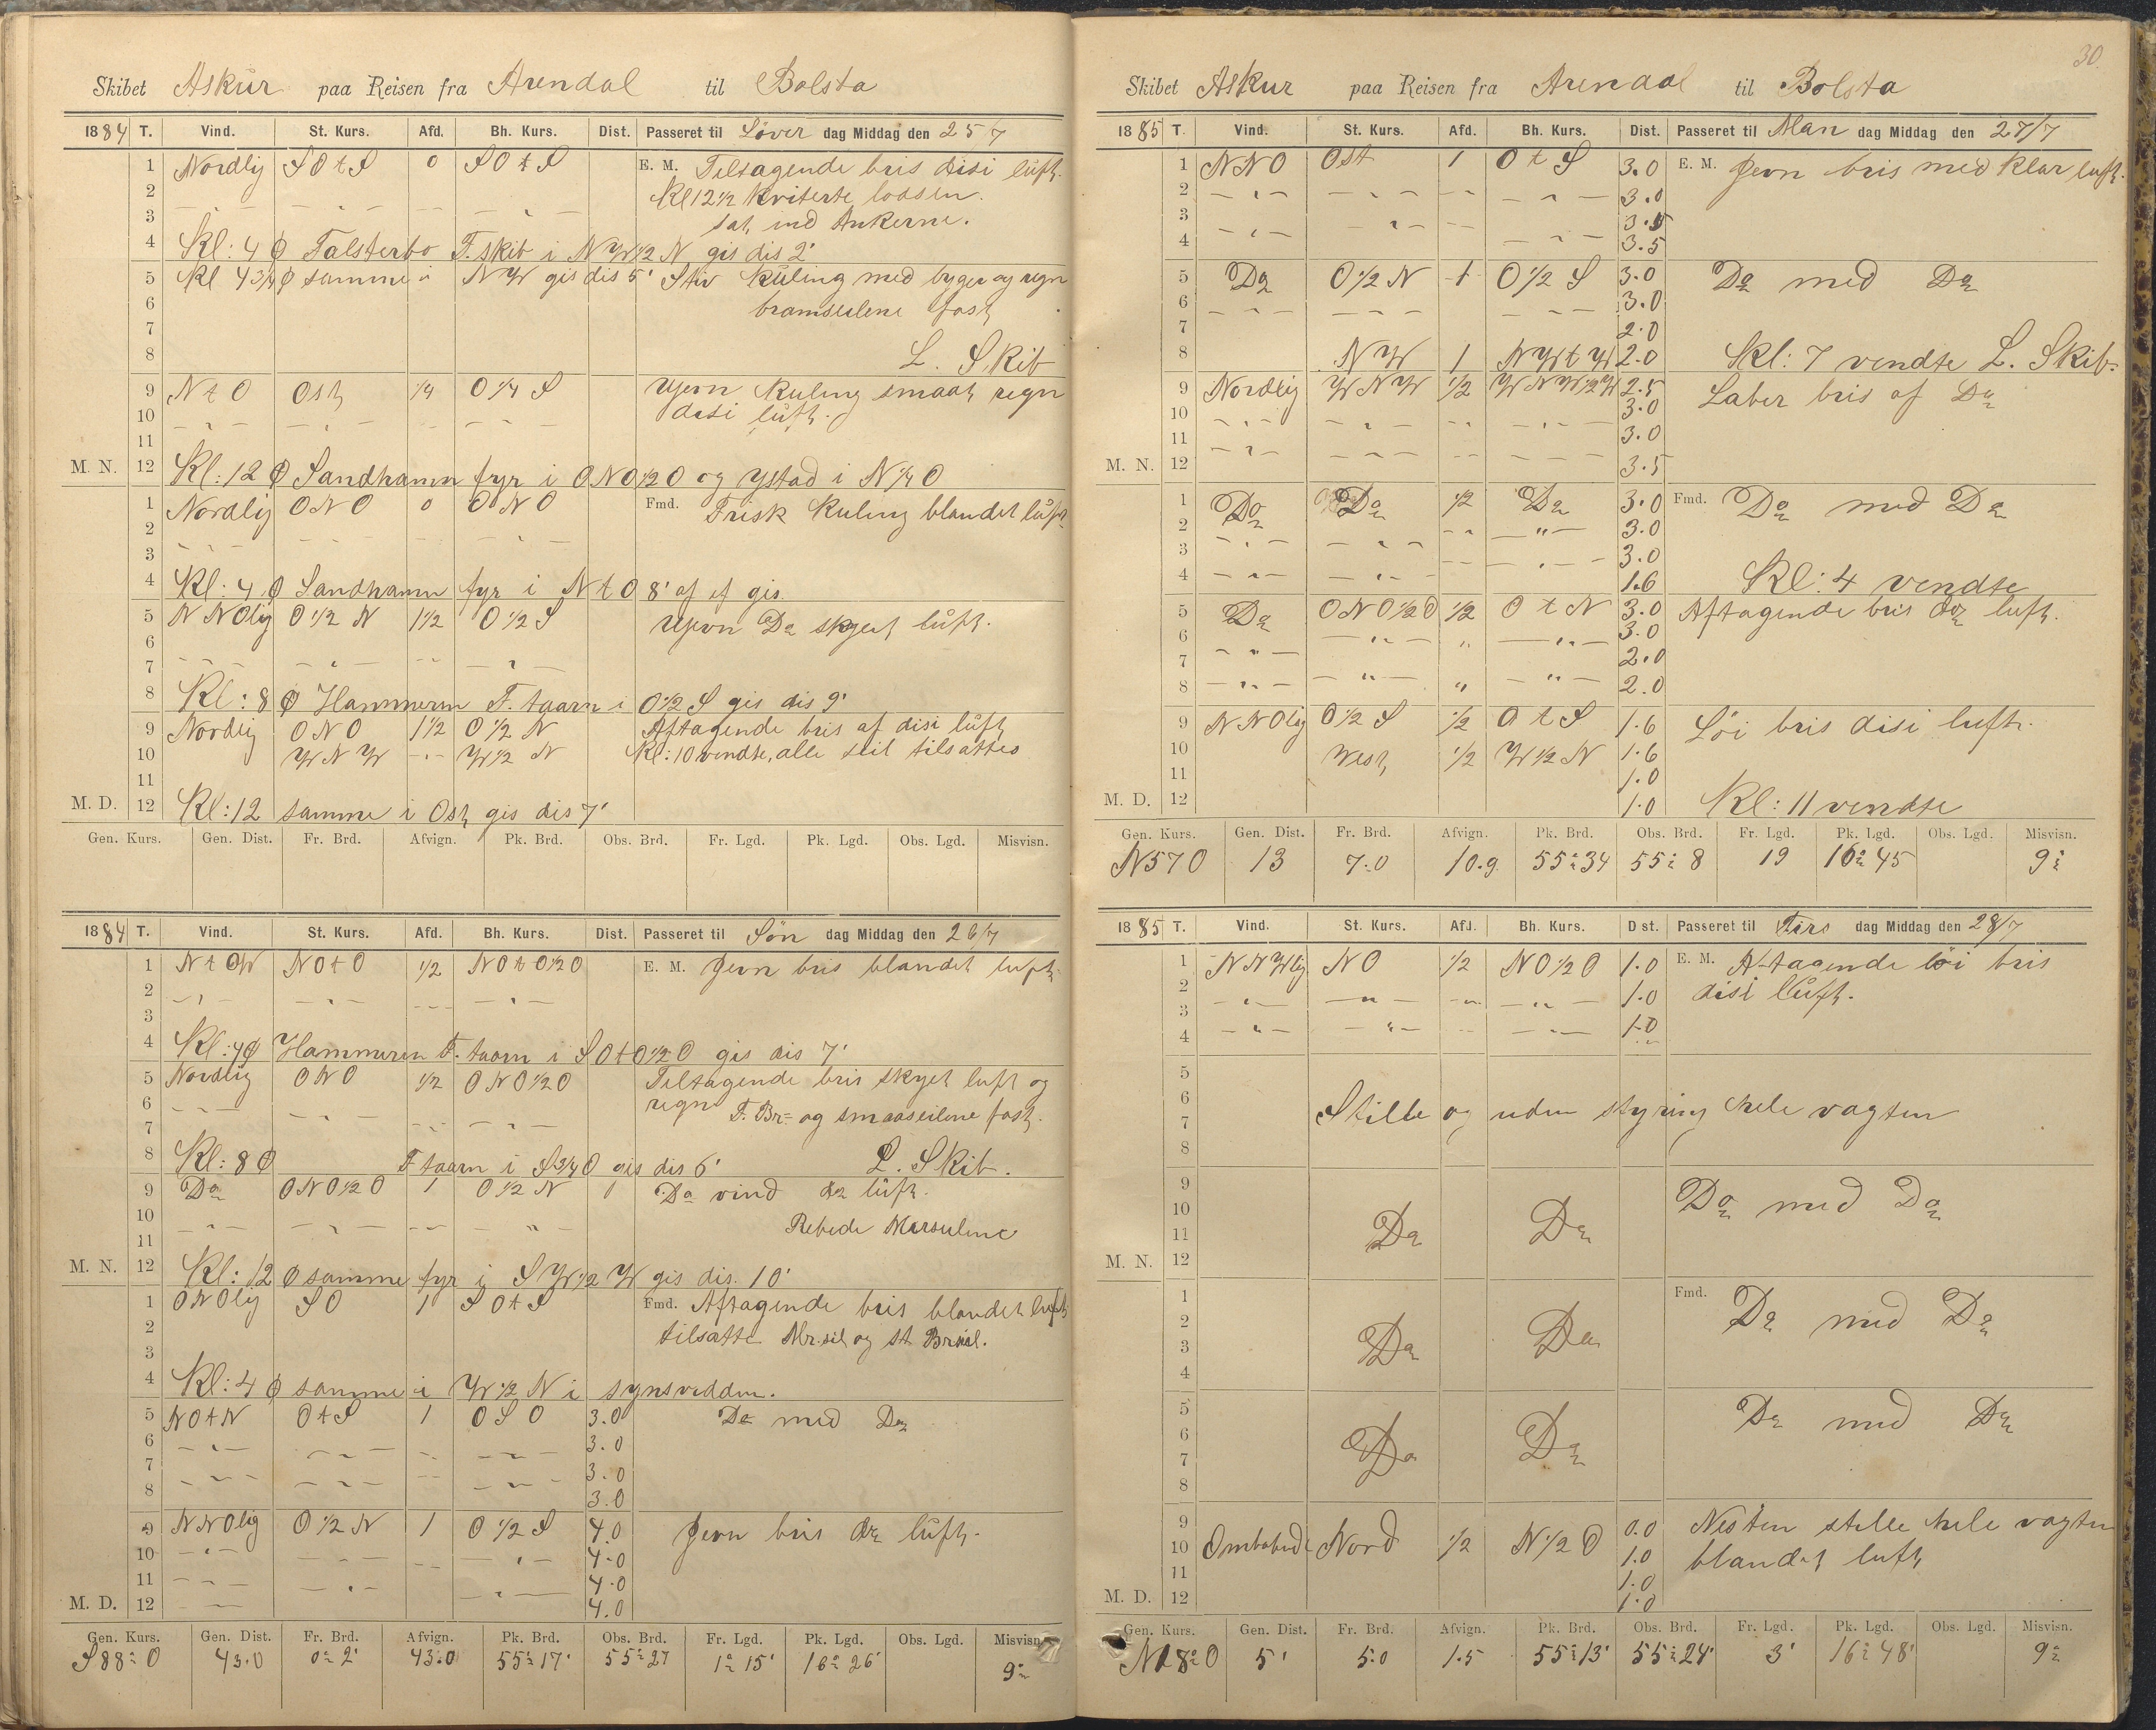 Skibet Askur paa Reisen fra Arendal til Bolsta
1884 T. Vind. St. Kurs. Afd. Bh. Kurs. Dist. Passeret til Löver dag Middag den 25/7
1 Nordlig SOtS 0 SOtS E. M. Tiltagende bris disi luft.
2 Kl 12 1/2 kviterte lodsen
3 sat ind Ankerne.
4 Kl: 4 Ø Falsterbo F. skib i NW 1/2 N gis dis 2'
5 Kl 4 3/4 Ø samme i NW gis dis 5' Stiv kuling med byger og regn
6 bramseilene fast
7
8 L. Skib
9 NtO Ost 1/4 O 1/4 S Yevn kuling smaat regn
10 disi luft.
11
M. N. 12 Kl: 12 Ø Sandhamn fyr i ONO 1/2 O og Ystad i N 1/4 O
1 Nordlig ONO 0 ONO Fmd. Frisk kuling blandet luft
2
3
4 Kl: 4 Ø Sandhamn fyr i NtO 8' af ef gis.
5 NNOlig O 1/2 N 1 1/2 O 1/2 S Yevn Do skyet luft.
6
7
8 Kl: 8 Ø Hammeren F. taarn i O 1/2 S gis dis 9'
9 Nordlig ONO 1 1/2 O 1/2 N Aftagende bris af disi luft
10 WNW W 1/2 N Kl: 10 vendte, alle seil tilsattes
11
M. D. 12 Kl: 12 samme i Ost gis dis 7'
Gen. Kurs. Gen. Dist. Fr. Brd. Afvign. Pk. Brd. Obs. Brd. Fr. Lgd. Pk. Lgd. Obs. Lgd. Misvisn.
1884 T. Vind. St. Kurs. Afd. Bh. Kurs. Dist. Passeret til Sön dag Middag den 26/7
1 NtW NOtO 1/2 NOtO 1/2 O E. M. Jevn bris blandet luft.
2
3
4 Kl: 4 Ø Hammeren F. taarn i SOtO 1/2 O gis dis 7'
5 Nordlig ONO 1/2 ONO 1/2 O Tiltagende bris skyet luft og
6 regn F. Br= og smaaseilene fast.
7
8 Kl: 8 Ø F taarn i S 3/4 O gis dis 6' L. Skib.
9 Do ONO 1/2 O 1 O 1/2 N Do vind do luft.
10 Rebede Merseilene
11
M. N. 12 Kl: 12 Ø samme fyr i SW 1/2 W gis dis. 10'
1 ONOlig SO 1 SOtS Fmd. Aftagende bris blandet luft
2 tilsatte Mr.seil og st Br.seil.
3
4 Kl: 4 Ø samme i W 1/2 N i synsvidden.
5 NOtN OtS 1 OSO 3.0 Do med Do
6 3.0
7 3.0
8 3.0
9 NNOlig O 1/2 N 1 O 1/2 S 4.0 Jevn bris do luft.
10 4.0
11 4.0
M. D. 12 4.0
Gen. Kurs. Gen. Dist. Fr. Brd. Afvign. Pk. Brd. Obs. Brd. Fr. Lgd. Pk. Lgd. Obs. Lgd. Misvisn.
S88°O 43.0 0° 2' 43.0 55° 17' 55° 27 1° 15' 16° 26' 9°
30.
Skibet Askur paa Reisen fra Arendal til Bolsta
1885 T. Vind. St. Kurs. Afd. Bh. Kurs. Dist. Passeret til Man dag Middag den 27/7
1 NNO Ost 1 OtS 3.0 E. M. Jevn bris med klar luft.
2 3.0
3 3.5
4 3.5
5 Do O 1/2 N 1 O 1/2 S 3.0 Do med Do
6 3.0
7 2.0
8 NW 1 NWtW 2.0 Kl: 7 vendte L. Skib.
9 Nordlig WNW 1/2 WNW 1/2 W 2.5 Laber bris af Do
10 3.0
11 3.0
M. N. 12 3.5
1 Do Do 1/2 Do 3.0 Fmd. Do med Do
2 3.0
3 3.0
4 1.6 Kl: 4 vendte
5 Do ONO 1/2 O 1/2 OtN 3.0 Aftagende bris do luft.
6 3.0
7 2.0
8 2.0
9 NNOlig O 1/2 S 1/2 OtS 1.6 Löi bris disi luft.
10 West 1/2 W 1/2 N 1.6
11 1.0
M. D. 12 1.0 Kl: 11 vendte
Gen. Kurs. Gen. Dist. Fr. Brd. Afvign. Pk. Brd. Obs. Brd. Fr. Lgd. Pk. Lgd. Obs. Lgd. Misvisn.
N57O 13 7.0 10.9 55° 34 55° 8 19 16° 45 9°
1885 T. Vind. St. Kurs. Afd. Bh. Kurs. Dist. Passeret til Tirs dag Middag den 28/7
1 NNWlig NO 1/2 NO 1/2 O 1.0 E. M. Aftagende löi bris
2 1.0 disi luft.
3 1.0
4
5
6 Stille og uden styring hele vagten
7
8
9 Do med Do
10 Do Do
11
M. N. 12
1 Fmd. Do med Do
2 Do Do
3
4
5 Do med Do
6 Do Do
7
8
9 0.0 Nesten stille hele vagten
10 Omlobende Nord 1/2 N 1/2 O 1.0 blandet luft
11 1.0
M. D. 12 1.0
Gen. Kurs. Gen. Dist. Fr. Brd. Afvign. Pk. Brd. Obs. Brd. Fr. Lgd. Pk. Lgd. Obs. Lgd. Misvisn.
N18°O 5' 5.0 1.5 55° 13' 55° 24' 3' 16° 48' 9°